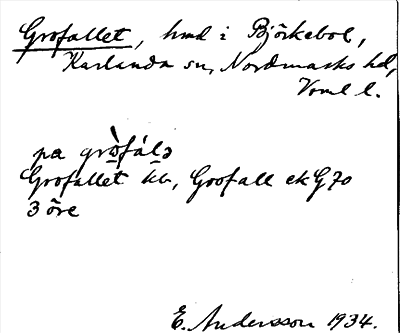 Grofallet, hmd i Björkebol,
Karlanda sn, Nordmarks hd,
Vrml l.
pa gro̱fàlə
Grofallet kb, Groofall ek G 70
3 öre
E. Andersson 1934.